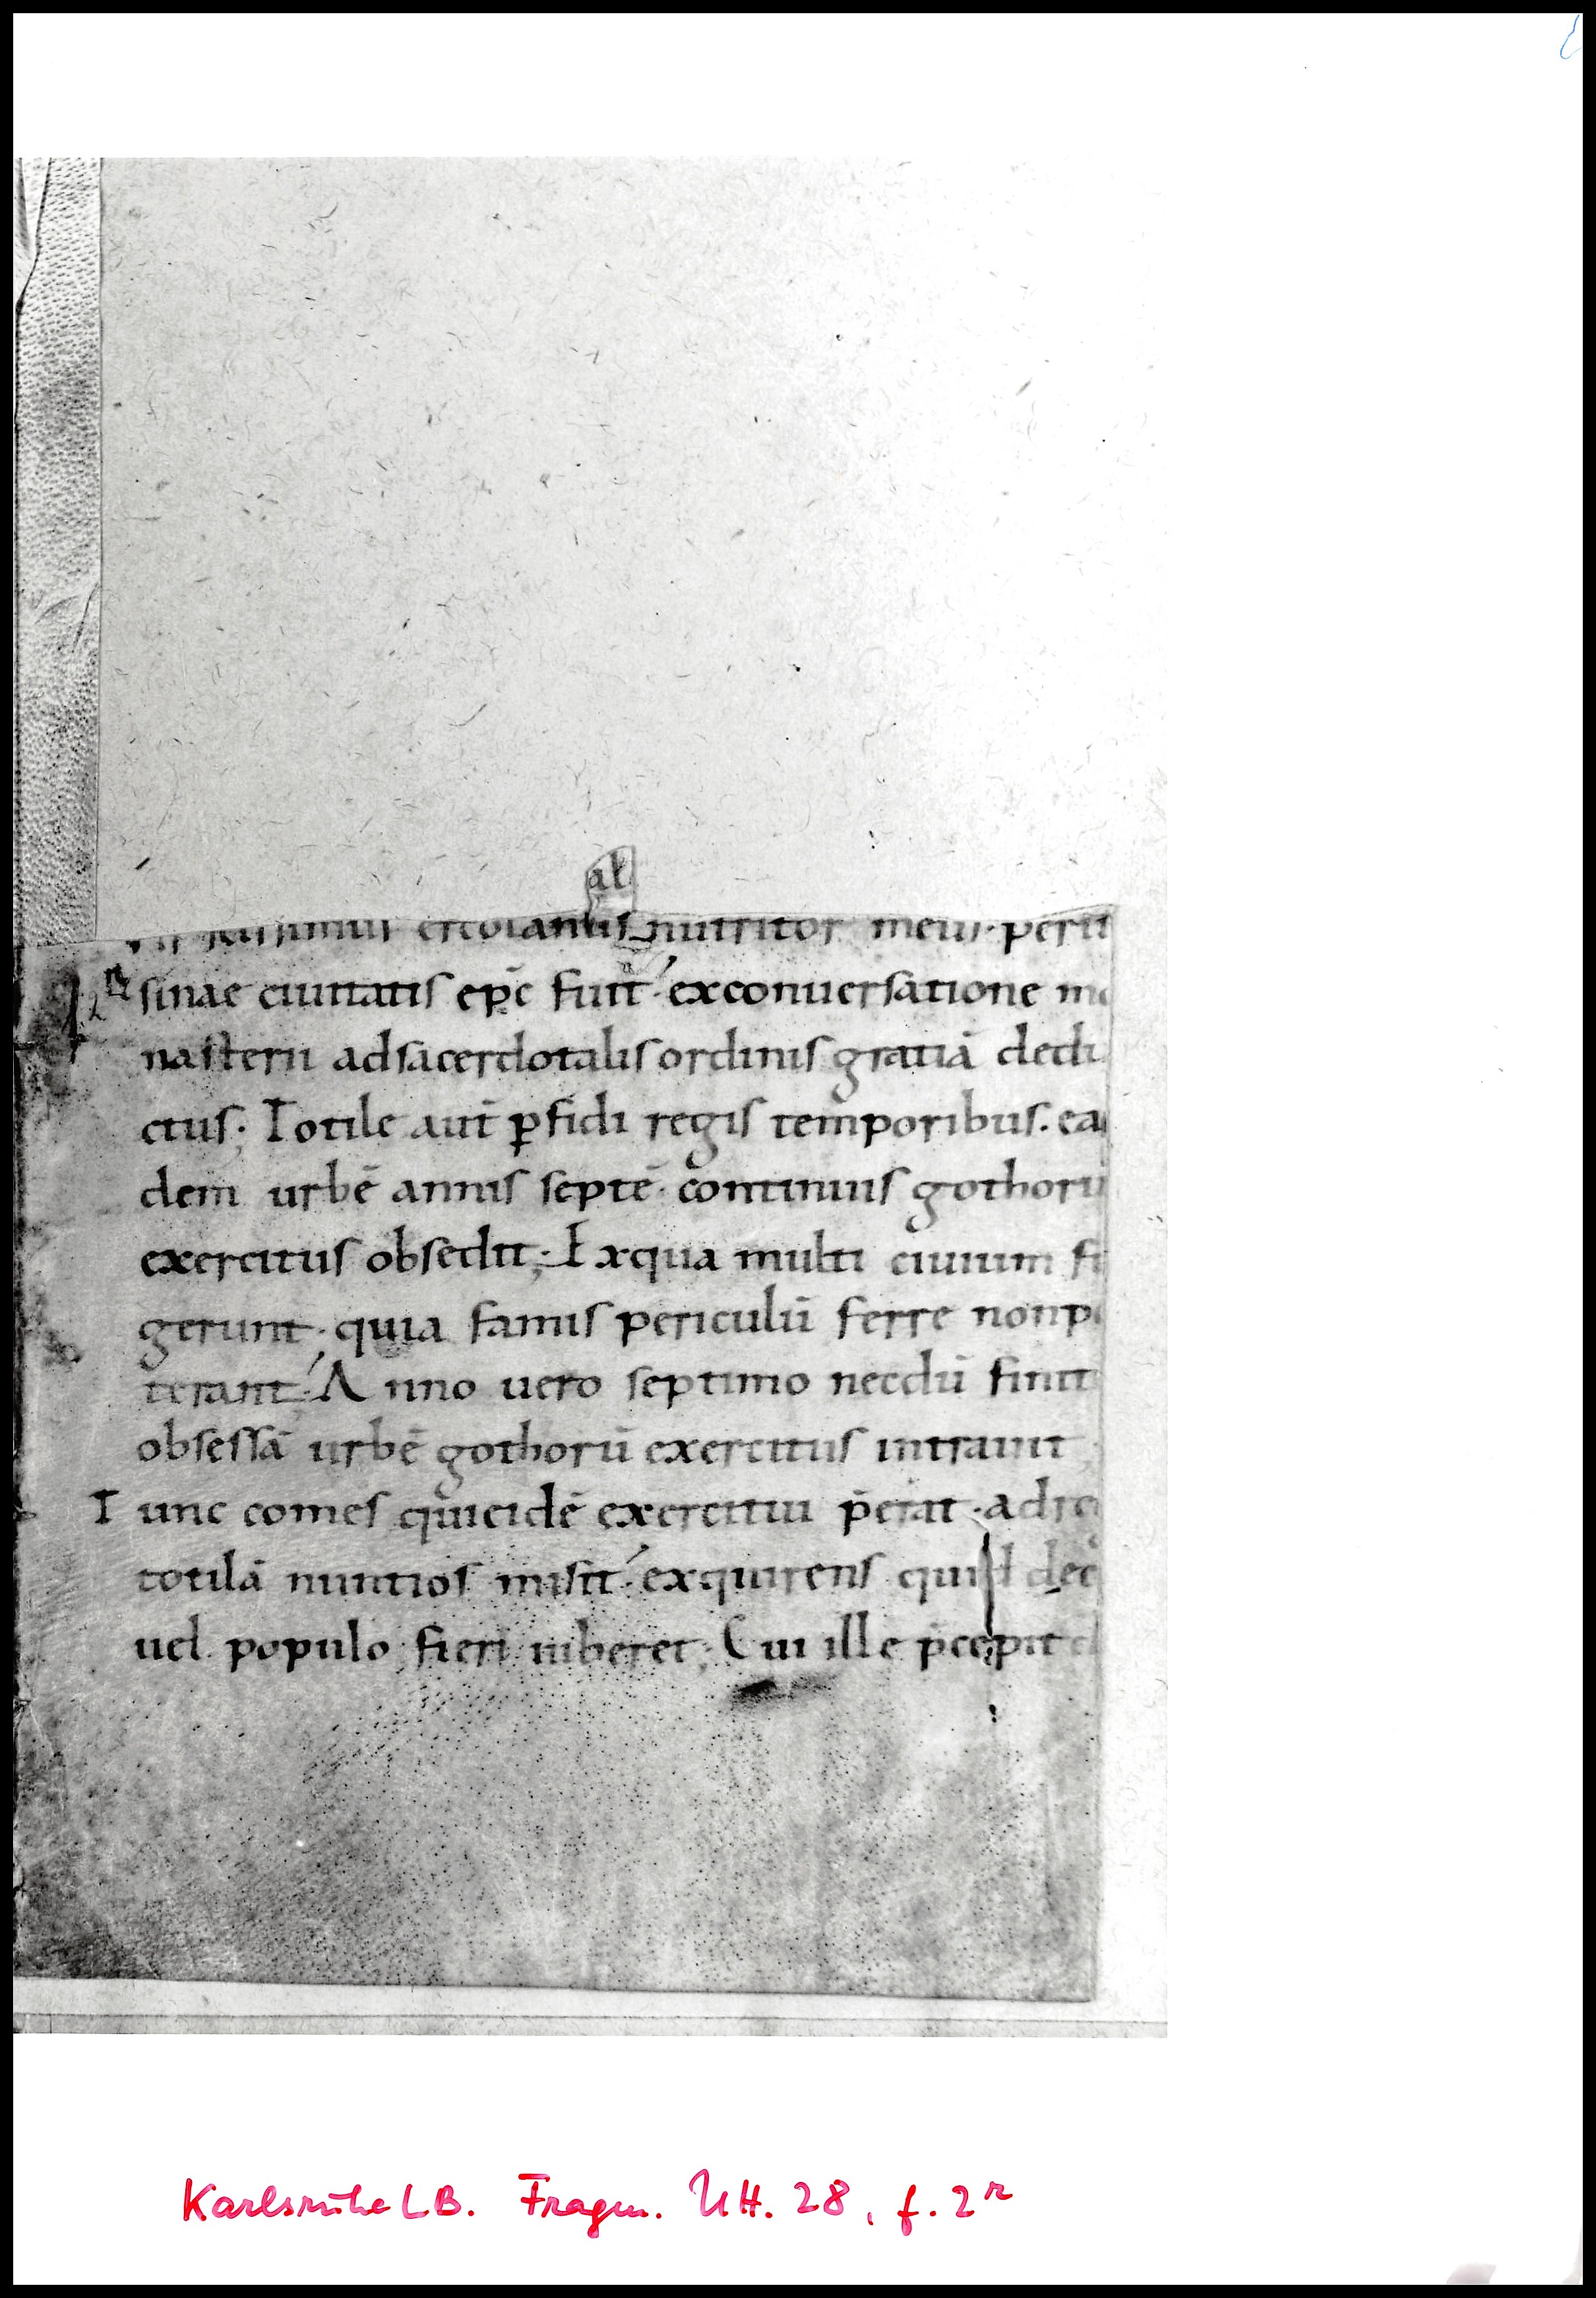 al
ercolanus nutritor meus. peru
sinae ciuitatis ep̄c fuit. exconuersatione mo
nasterii adsacerdotalis ordinis gratiā dedu
ctus; Totile aut̄ ꝑfidi regis temporibus. ean
dem urbē annis septē. continuis gothorū
exercitus obsedit; Exqua multi ciuium fu
gerunt. quia famis periculū ferre nonpo
terant; Anno uero septimo necdū finito
obsessā urbē gothorū exercitus intrauit;
Tunc comes qui eidē exercitui p̄erat. adre
totilā nuntios misit. exquirens quid de
uel populo fieri iuberet; Cui ille p̄cepit
Karlsruhe LB. Fragm. UH. 28, f. 2r